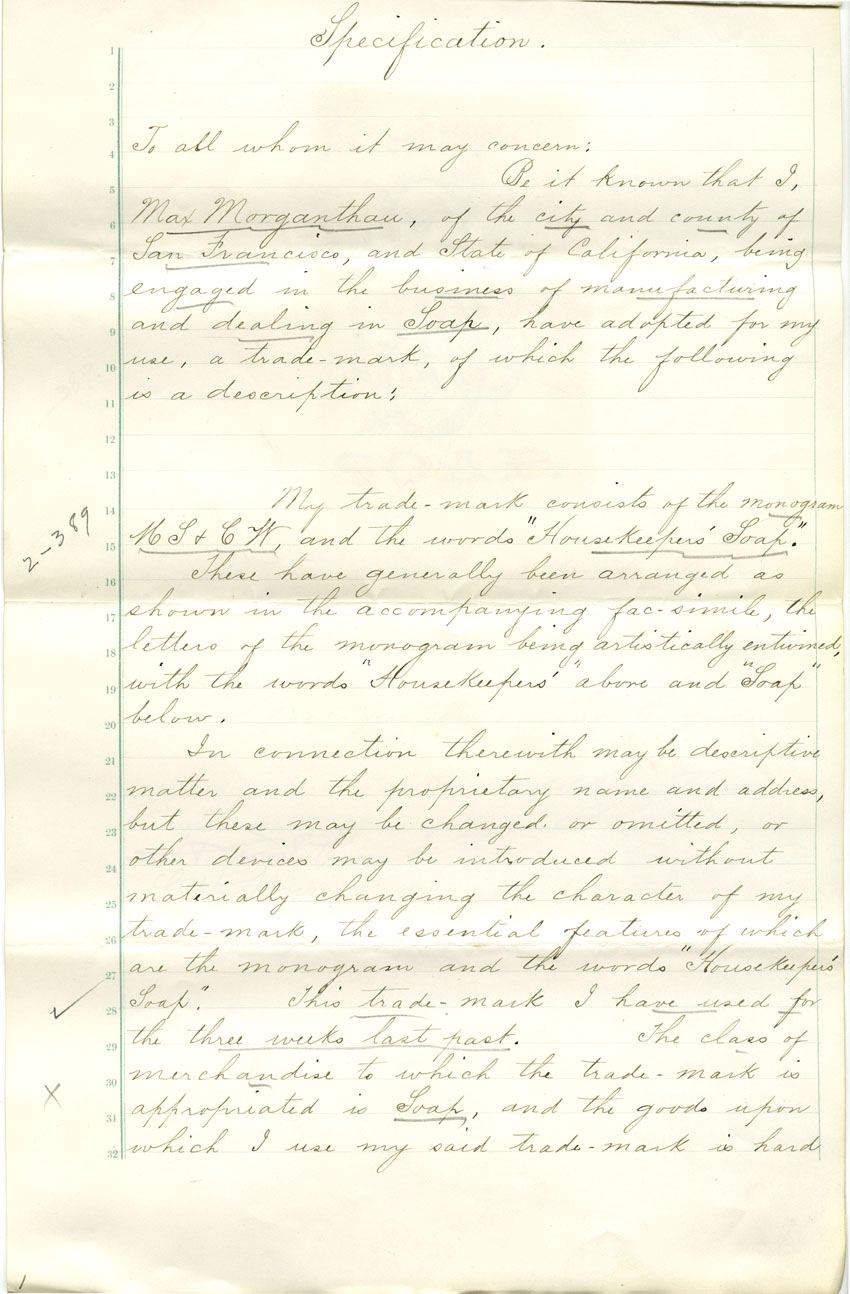 Specification.
To all whom it may concern:
Be it known that I,
Max Morganthau, of the city and county of
San Francisco, and State of California, being
engaged in the business of manufacturing
and dealing in Soap, have adopted for my
use, a trade-mark, of which the following
is a description:
My trade-mark consists of the monogram
M S & C W, and the words "Housekeepers' Soap."
2-389
These have generally been arranged as
shown in the accompanying fac-simile, the
letters of the monogram being artistically entwined,
with the words "Housekeepers'" above and "Soap"
below.
In connection therewith may be descriptive
matter and the proprietary name and address,
but these may be changed or omitted, or
other devices may be introduced without
materially changing the character of my
trade-mark, the essential features of which
are the monogram and the words "Housekeepers'
Soap". This trade-mark I have used for
the three weeks last past. The class of
merchandise to which the trade-mark is
appropriated is Soap, and the goods upon
which I use my said trade-mark is hard
1
1
2
3
4
5
6
7
8
9
10
11
12
13
14
15
16
17
18
19
20
21
22
23
24
25
26
27
28
29
30
31
32